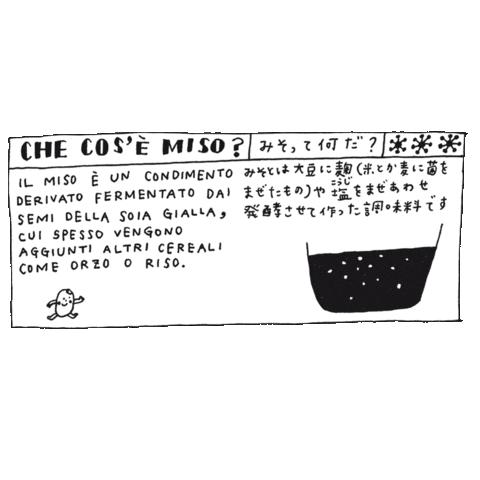 CHE COS'È MISO?
みそって何だ?
IL MISO È UN CONDIMENTO
DERIVATO FERMENTATO DAI
SEMI DELLA SOIA GIALLA,
CUI SPESSO VENGONO
AGGIUNTI ALTRI CEREALI
COME ORZO O RISO.
みそとは大豆に麹(米とか麦に菌を
まぜたもの)や塩をまぜあわせ
発酵させて作った調味料です
こうじ